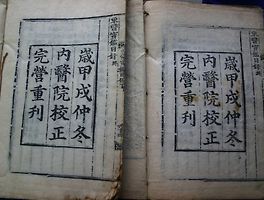 歲甲戌仲冬
內醫院校正
完營重刊
歲甲戌仲冬
內醫院校正
完營重刊